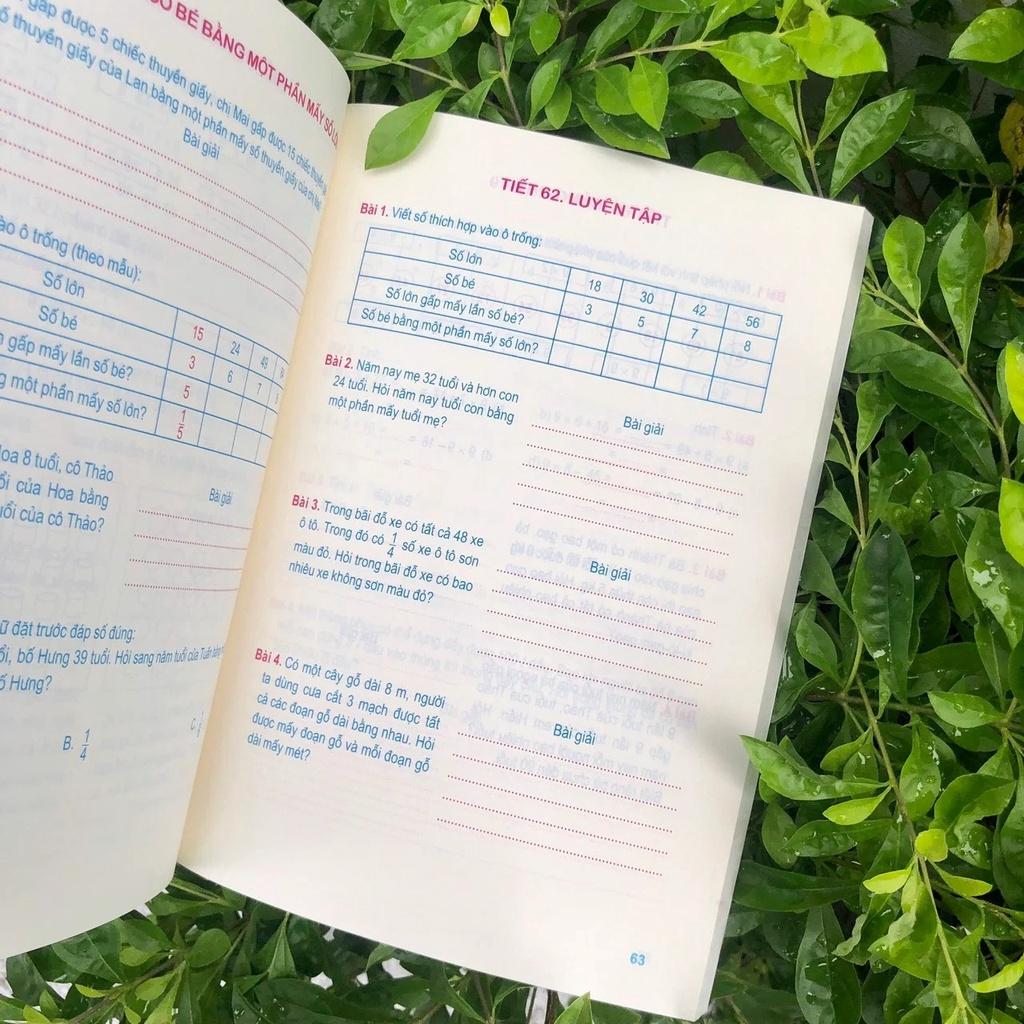 SỐ BÉ BẰNG MỘT PHẦN MẤY SỐ
gấp được 5 chiếc thuyền giấy, chị Mai gấp được 15 chiếc thuyền
số thuyền giấy của Lan bằng một phần mấy số thuyền giấy của chị Mai?
Bài giải
vào ô trống (theo mẫu):
Số lớn 15 24 49
Số bé 3 6 7
gấp mấy lần số bé? 5
một phần mấy số lớn? 1/5
Hoa 8 tuổi, cô Thảo
của Hoa bằng
tuổi của cô Thảo?
Bài giải
đặt trước đáp số đúng:
bố Hưng 39 tuổi. Hỏi sang năm tuổi của Tuấn
Hưng?
B. 1/4
C.
TIẾT 62. LUYỆN TẬP
Bài 1. Viết số thích hợp vào ô trống:
Số lớn 18 30 42 56
Số bé 3 5 7 8
Số lớn gấp mấy lần số bé?
Số bé bằng một phần mấy số lớn?
Bài 2. Năm nay mẹ 32 tuổi và hơn con
24 tuổi. Hỏi năm nay tuổi con bằng
một phần mấy tuổi mẹ?
Bài giải
Bài 3. Trong bãi đỗ xe có tất cả 48 xe
ô tô. Trong đó có 1/4 số xe ô tô sơn
màu đỏ. Hỏi trong bãi đỗ xe có bao
nhiêu xe không sơn màu đỏ?
Bài giải
Bài 4. Có một cây gỗ dài 8 m, người
ta dùng cưa cắt 3 mạch được tất
cả các đoạn gỗ dài bằng nhau. Hỏi
được mấy đoạn gỗ và mỗi đoạn gỗ
dài mấy mét?
Bài giải
63